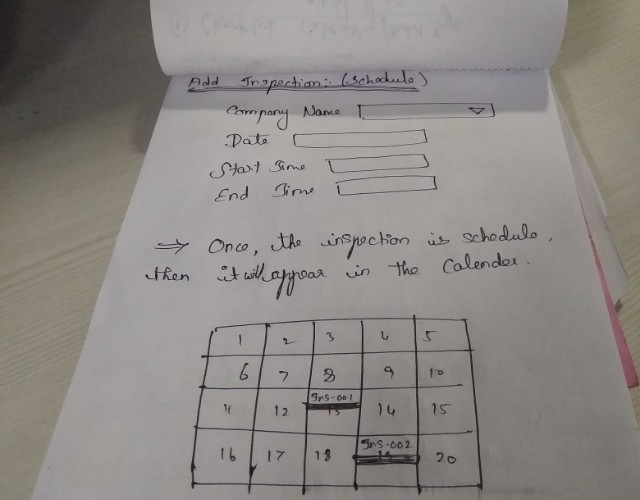 Add Inspection:- (Schedule)
Company Name
Date
Start Time
End Time
⇒ Once, the inspection is schedule,
then it will appear in the Calender.
1 2 3 4 5
6 7 8 9 10
Ins-001
11 12 13 14 15
Ins-002
16 17 18 19 20